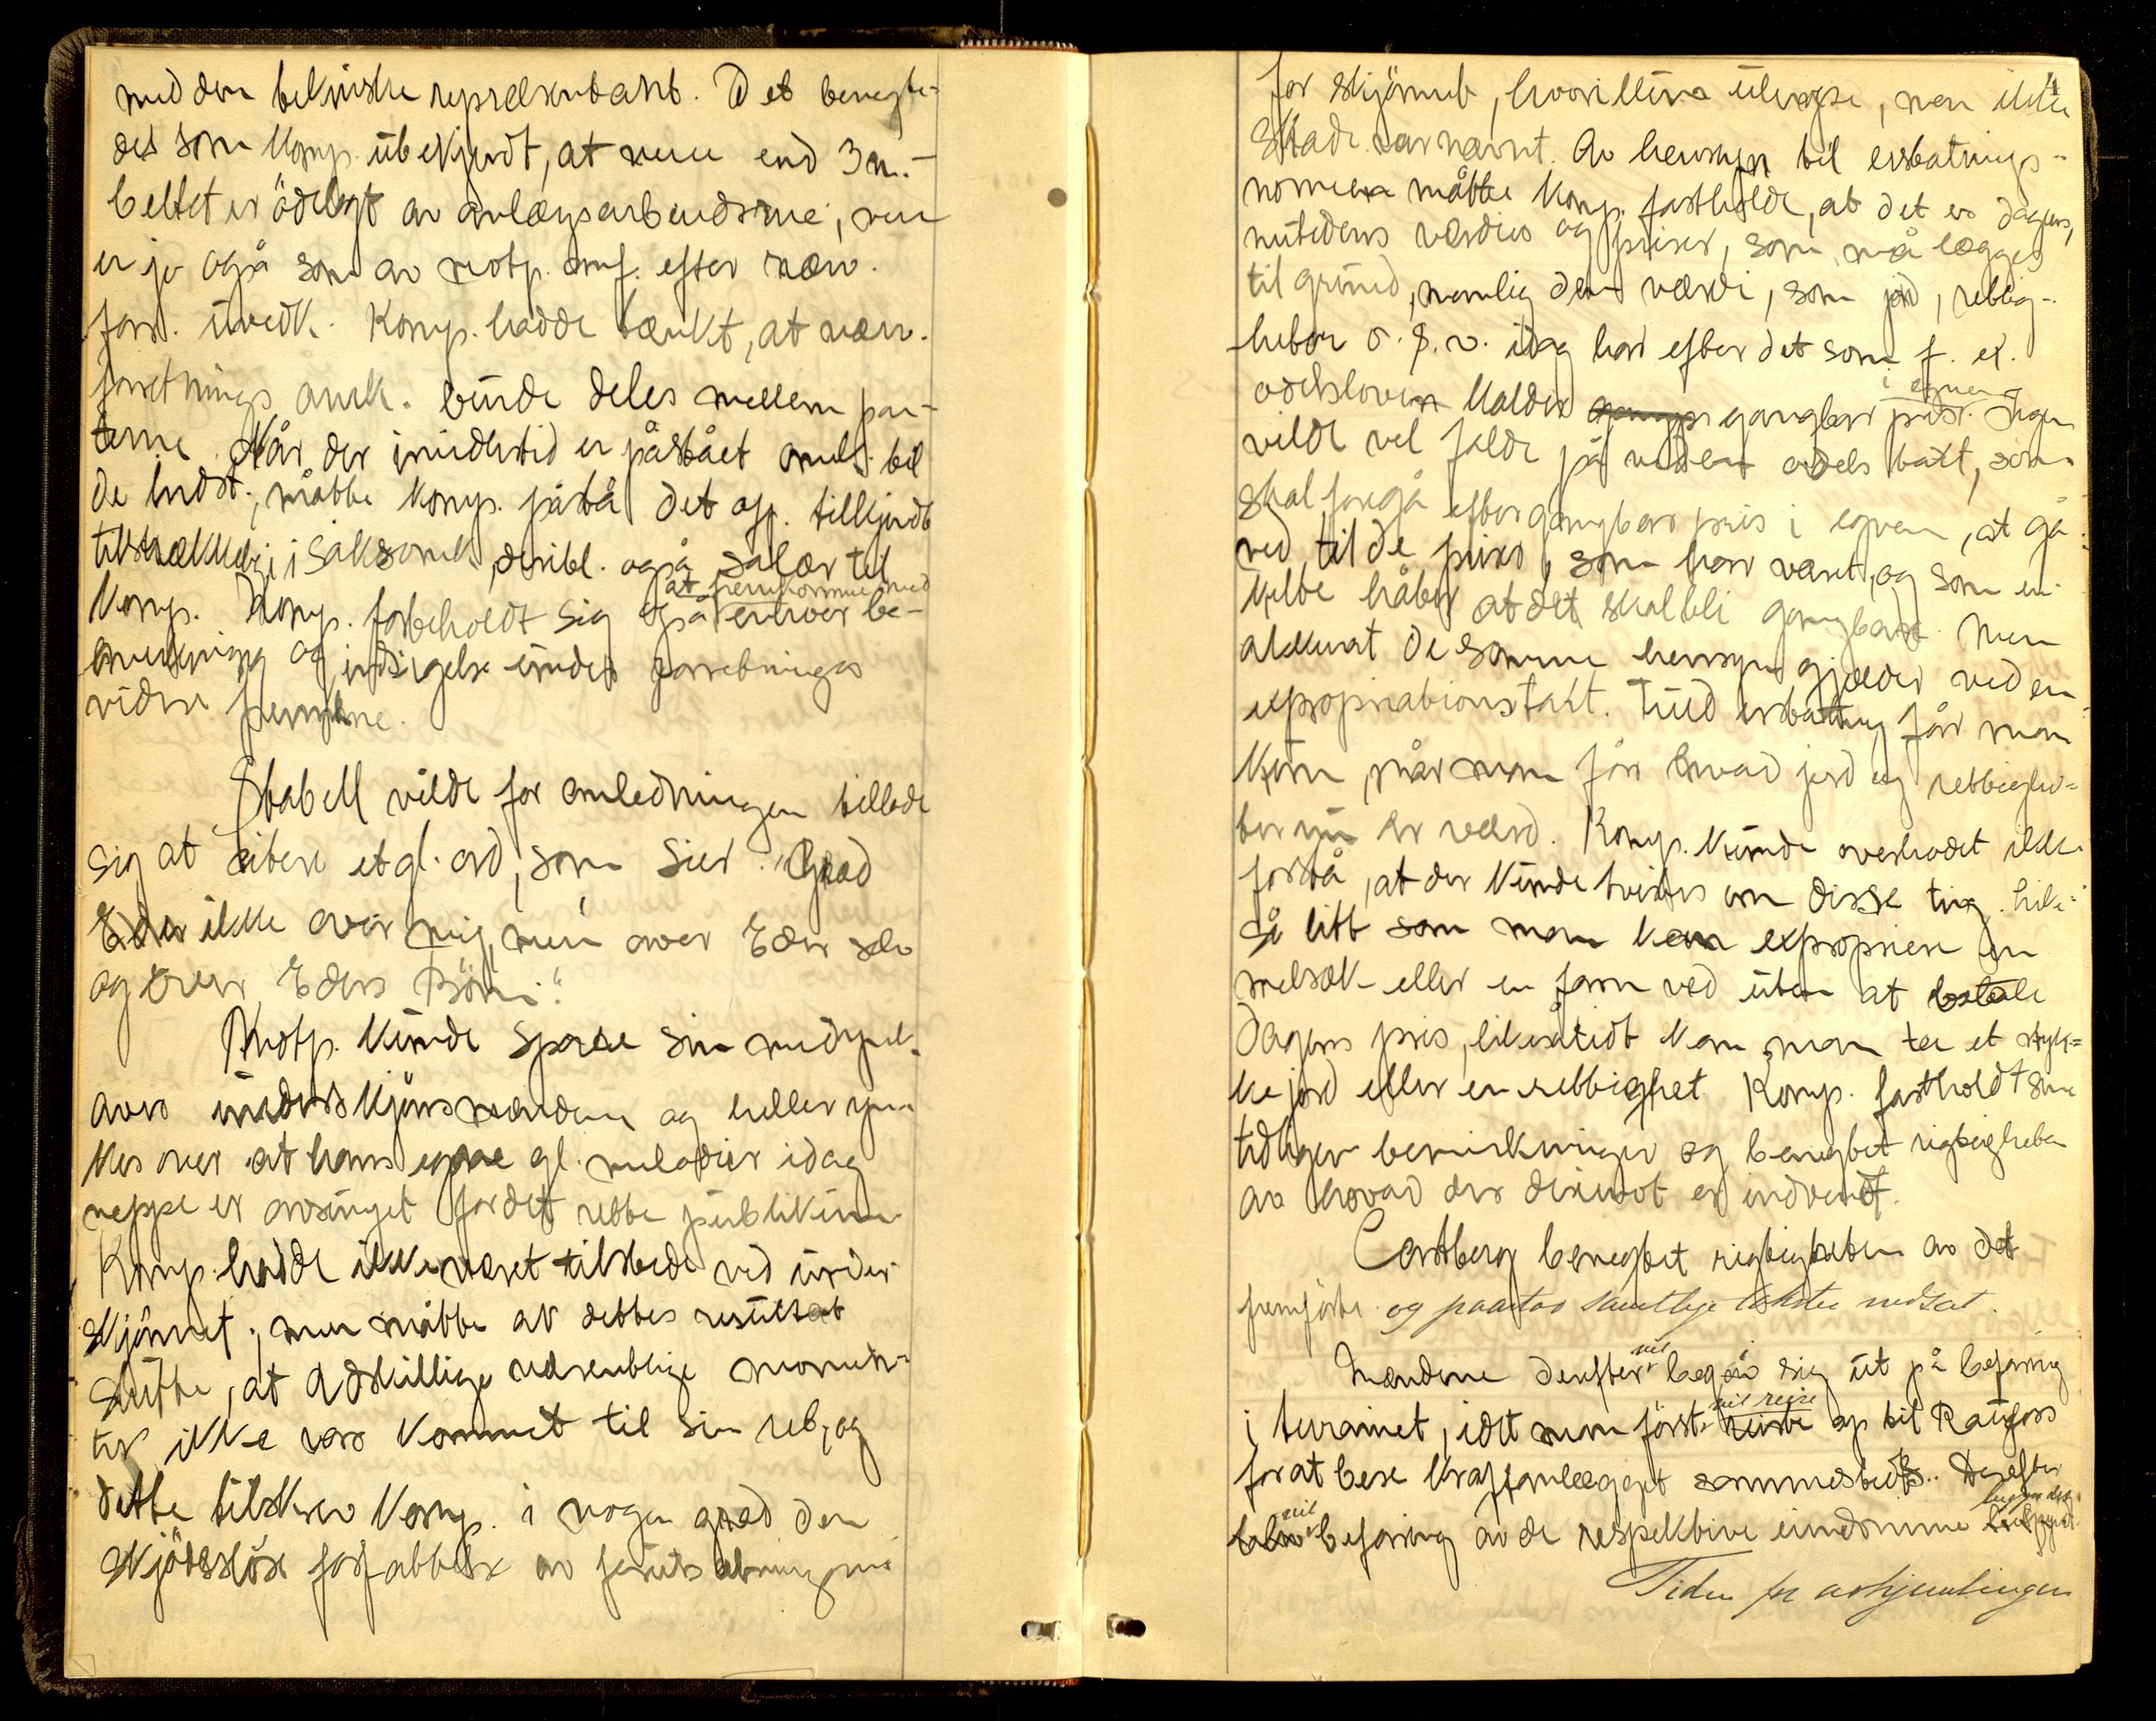 med den tekniske repræsentant. Det benegte-
des som komp. ubekjendt, at mere end 3 m.-
beltet er ödelagt av anlægsarbeiderne; men
er jo også som av motp. anf. efter nærv.
forr. uvedk. Komp. hadde tænkt, at nærv.
forretnings omk. burde deles mellem par-
terne. Når der imidlertid er påstået omk. til-
de indst., måtte komp. påstå det opr. tilkjendt
tilstrækkelig i saksomk., deribl. også salær til
komp. Komp. forbeholdt sig også at fremkomme med enhver be-
merkning og indsigelse under forretningens
videre fremme.
Stabell vilde for anledningen tillade
sig at citere et gl. ord, som sier: "Græd
Eder ikke over mig, men over Eder selv
og over Eders börn."
Motp. kunde spare sin medynk
over underskjönsmændene og heller yn-
kes over at hans egne gl. melodier idag
neppe er avsunget for det rette publikum
Komp. hadde ikke været tilstede ved under-
skjönnet, men måtte av dettes resultat
slutte, at adskillige væsentlige momen-
ter ikke var kommet til sin ret, og
dette tilskrev komp. i nogen grad den
skjödeslöse forfattelse av forutsætningerne
4
for skjönnet, hvori ulempe, men ikke
skade var nævnt. Av hensyn til erstatnings-
normen måtte komp. fastholde, at det er dagens,
nutidens værdier og priser, som må lægges
til grund, nemlig den værdi, som jord, rettig-
heter o. s. v. idag har efter det som f. ex.
odelsloven kalder gangbar pris i egnen. Ingen
vilde vel falde på ved en odelstakt, som
skal foregå efter gangbar pris i egnen, at gå
ned til de priser, som har været, og som en-
kelte håber at det skal bli gangbart. Men
akkurat de samme hensyn gjælder ved en
expropriationstakt. Fuld erstatning får man
kun, når man får hvad jord og rettighe-
ter nu er værd. Komp. kunde overhodet ikke
forstå, at der kunde tvistes om disse ting. Like-
så litt som man kan expropriere en
melsæk eller en favn ved uten at betale
dagens pris, likesålidt kan man ta et styk-
ke jord eller en rettighet. Komp. fastholdt sine
tidligere bemerkninger og benegtet rigtigheten
av hvad der derimot er indvendt.
Castberg benegtet rigtigheten av det
fremförte og paastod samtlige takster nedsat.
Mændene derefter vil begi sig ut på befaring
i terrainet, idet man först vil reise op til Raufoss
for at bese kraftanlægget sammesteds. Derefter
vil befaring av de respektive eiendomme
Tiden for avhjemlingen